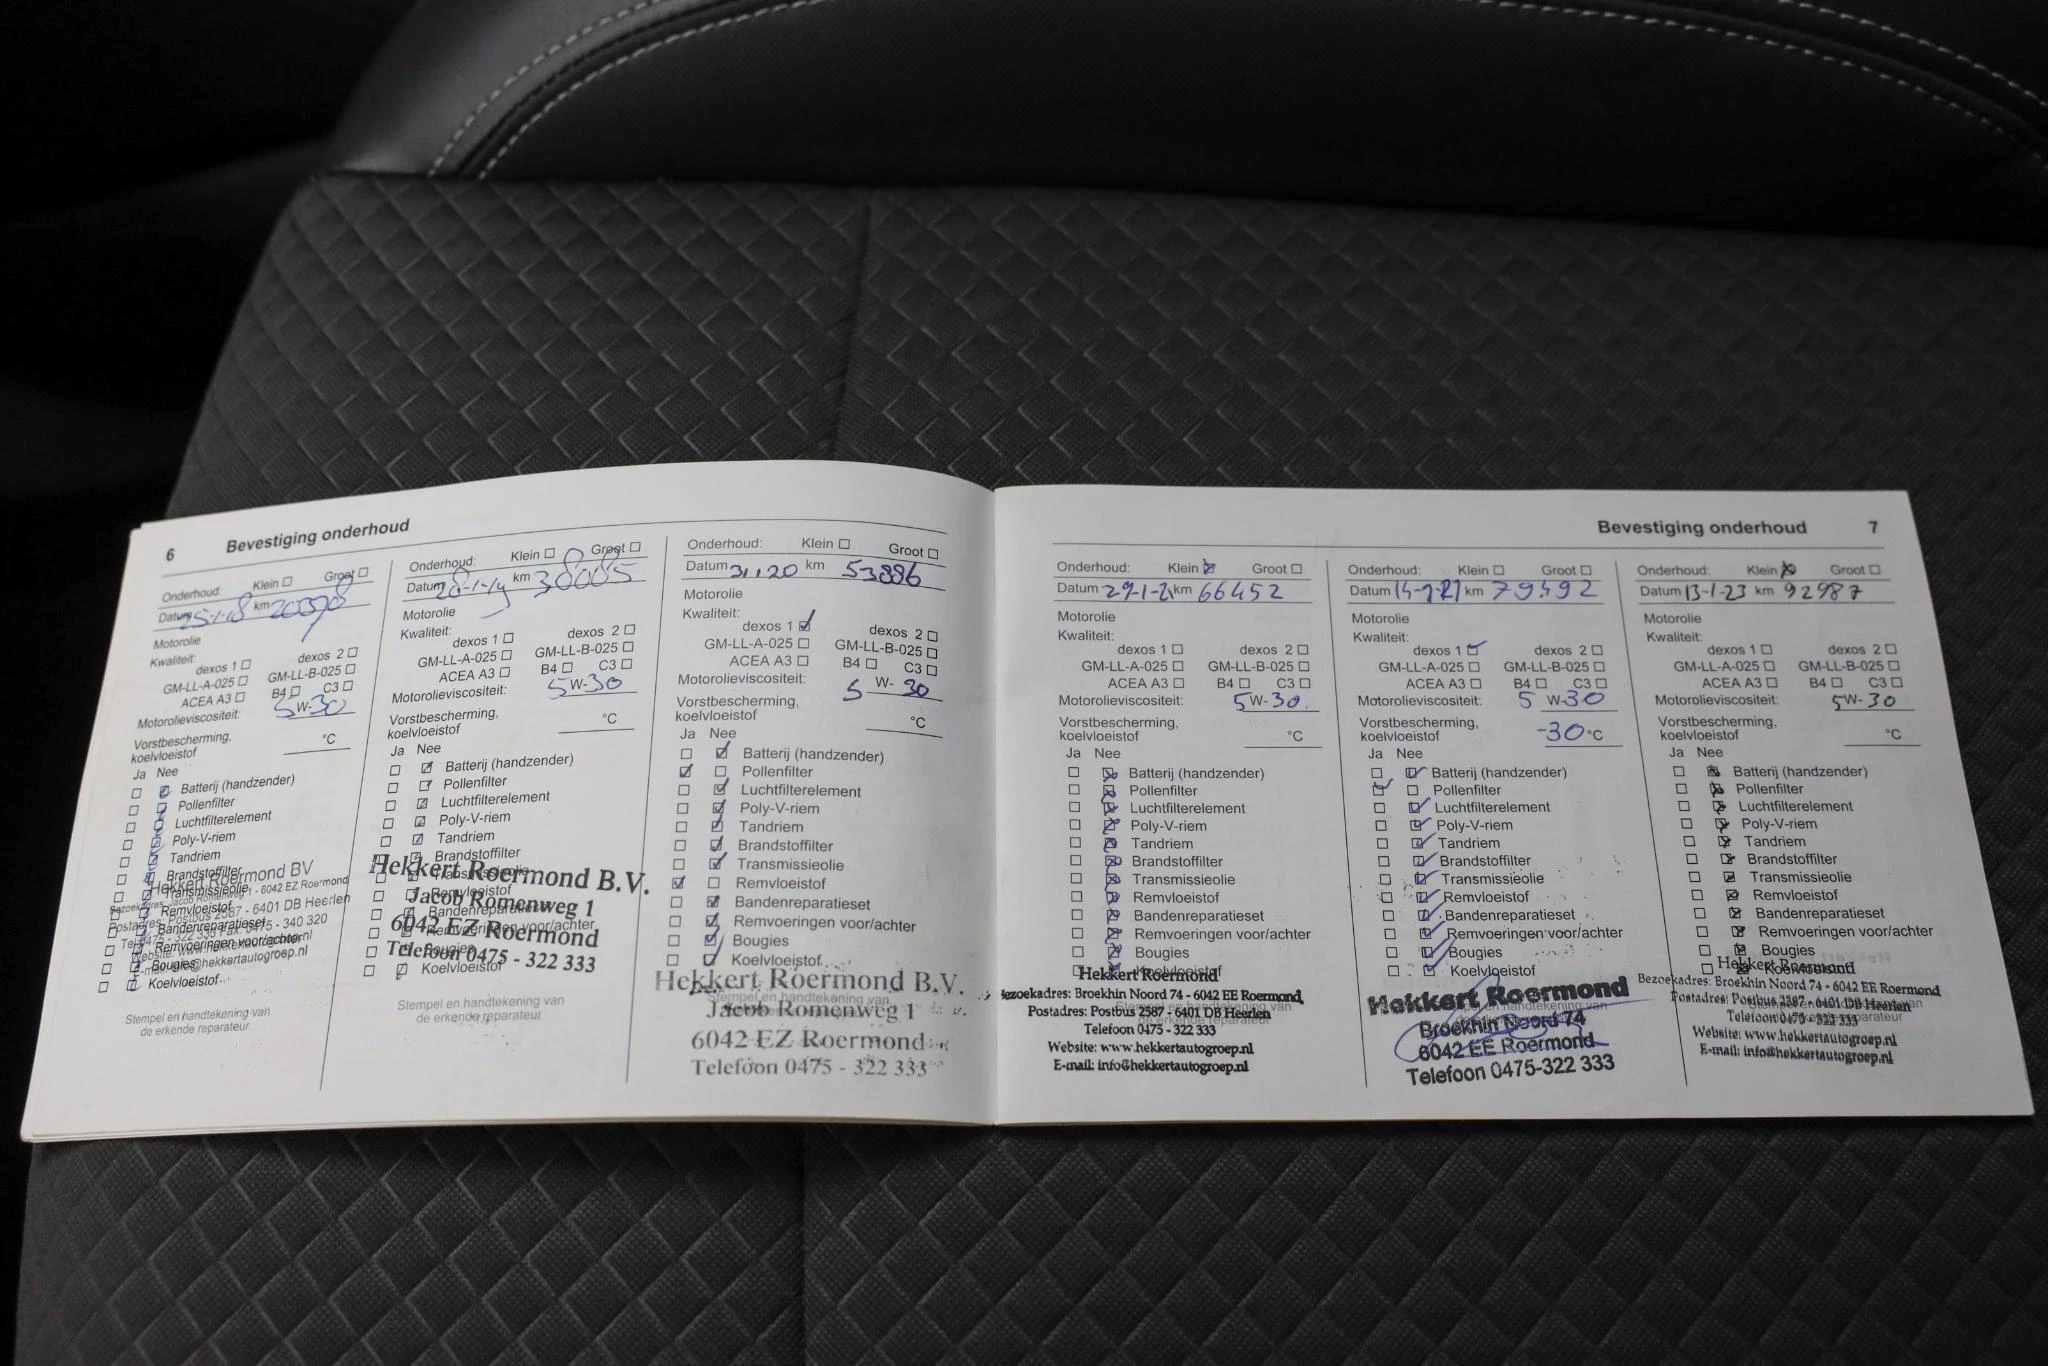 6 Bevestiging onderhoud
Onderhoud: Klein Groot
Datum 25-1-18 km 20398
Motorolie
Kwaliteit:
dexos 1 dexos 2
GM-LL-A-025 GM-LL-B-025
ACEA A3 B4 C3
Motorolieviscositeit: 5 W-30
Vorstbescherming,
koelvloeistof °C
Ja Nee
Batterij (handzender)
Pollenfilter
Luchtfilterelement
Poly-V-riem
Tandriem
Brandstoffilter
Transmissieolie
Remvloeistof
Bandenreparatieset
Remvoeringen voor/achter
Bougies
Koelvloeistof
Hekkert Roermond BV
Bezoekadres: Jacob Romenweg 1 - 6042 EZ Roermond
Postadres: Postbus 2587 - 6401 DB Heerlen
Tel. 0475 - 322 333 Fax. 0475 - 340 320
Website: www.hekkertautogroep.nl
E-mail: info@hekkertautogroep.nl
Stempel en handtekening van
de erkende reparateur
Onderhoud: Klein Groot
Datum 28-1-19 km 38085
Motorolie
Kwaliteit:
dexos 1 dexos 2
GM-LL-A-025 GM-LL-B-025
ACEA A3 B4 C3
Motorolieviscositeit: 5 W-30
Vorstbescherming,
koelvloeistof °C
Ja Nee
Batterij (handzender)
Pollenfilter
Luchtfilterelement
Poly-V-riem
Tandriem
Brandstoffilter
Transmissieolie
Remvloeistof
Bandenreparatieset
Remvoeringen voor/achter
Bougies
Koelvloeistof
Hekkert Roermond B.V.
Jacob Romenweg 1
6042 EZ Roermond
Telefoon 0475 - 322 333
Stempel en handtekening van
de erkende reparateur
Onderhoud: Klein Groot
Datum 31.1.20 km 53886
Motorolie
Kwaliteit:
dexos 1 dexos 2
GM-LL-A-025 GM-LL-B-025
ACEA A3 B4 C3
Motorolieviscositeit: 5 W-30
Vorstbescherming,
koelvloeistof °C
Ja Nee
Batterij (handzender)
Pollenfilter
Luchtfilterelement
Poly-V-riem
Tandriem
Brandstoffilter
Transmissieolie
Remvloeistof
Bandenreparatieset
Remvoeringen voor/achter
Bougies
Koelvloeistof
Hekkert Roermond B.V.
Stempel en handtekening van
Jacob Romenweg 1
6042 EZ Roermond
Telefoon 0475 - 322 333
Bevestiging onderhoud 7
Onderhoud: Klein Groot
Datum 29-1-21 km 66452
Motorolie
Kwaliteit:
dexos 1 dexos 2
GM-LL-A-025 GM-LL-B-025
ACEA A3 B4 C3
Motorolieviscositeit: 5 W-30
Vorstbescherming,
koelvloeistof °C
Ja Nee
Batterij (handzender)
Pollenfilter
Luchtfilterelement
Poly-V-riem
Tandriem
Brandstoffilter
Transmissieolie
Remvloeistof
Bandenreparatieset
Remvoeringen voor/achter
Bougies
Koelvloeistof
Hekkert Roermond
Bezoekadres: Broekhin Noord 74 - 6042 EE Roermond
Postadres: Postbus 2587 - 6401 DB Heerlen
Telefoon 0475 - 322 333
Website: www.hekkertautogroep.nl
E-mail: info@hekkertautogroep.nl
Onderhoud: Klein Groot
Datum km 79492
Motorolie
Kwaliteit:
dexos 1 dexos 2
GM-LL-A-025 GM-LL-B-025
ACEA A3 B4 C3
Motorolieviscositeit: 5 W-30
Vorstbescherming,
koelvloeistof -30 °C
Ja Nee
Batterij (handzender)
Pollenfilter
Luchtfilterelement
Poly-V-riem
Tandriem
Brandstoffilter
Transmissieolie
Remvloeistof
Bandenreparatieset
Remvoeringen voor/achter
Bougies
Koelvloeistof
Hekkert Roermond
Broekhin Noord 74
6042 EE Roermond
Telefoon 0475-322 333
Onderhoud: Klein Groot
Datum 13-1-23 km 92987
Motorolie
Kwaliteit:
dexos 1 dexos 2
GM-LL-A-025 GM-LL-B-025
ACEA A3 B4 C3
Motorolieviscositeit: 5W-30
Vorstbescherming,
koelvloeistof °C
Ja Nee
Batterij (handzender)
Pollenfilter
Luchtfilterelement
Poly-V-riem
Tandriem
Brandstoffilter
Transmissieolie
Remvloeistof
Bandenreparatieset
Remvoeringen voor/achter
Bougies
Koelvloeistof
Hekkert Roermond
Bezoekadres: Broekhin Noord 74 - 6042 EE Roermond
Postadres: Postbus 2587 - 6401 DB Heerlen
Telefoon 0475 - 322 333
Website: www.hekkertautogroep.nl
E-mail: info@hekkertautogroep.nl